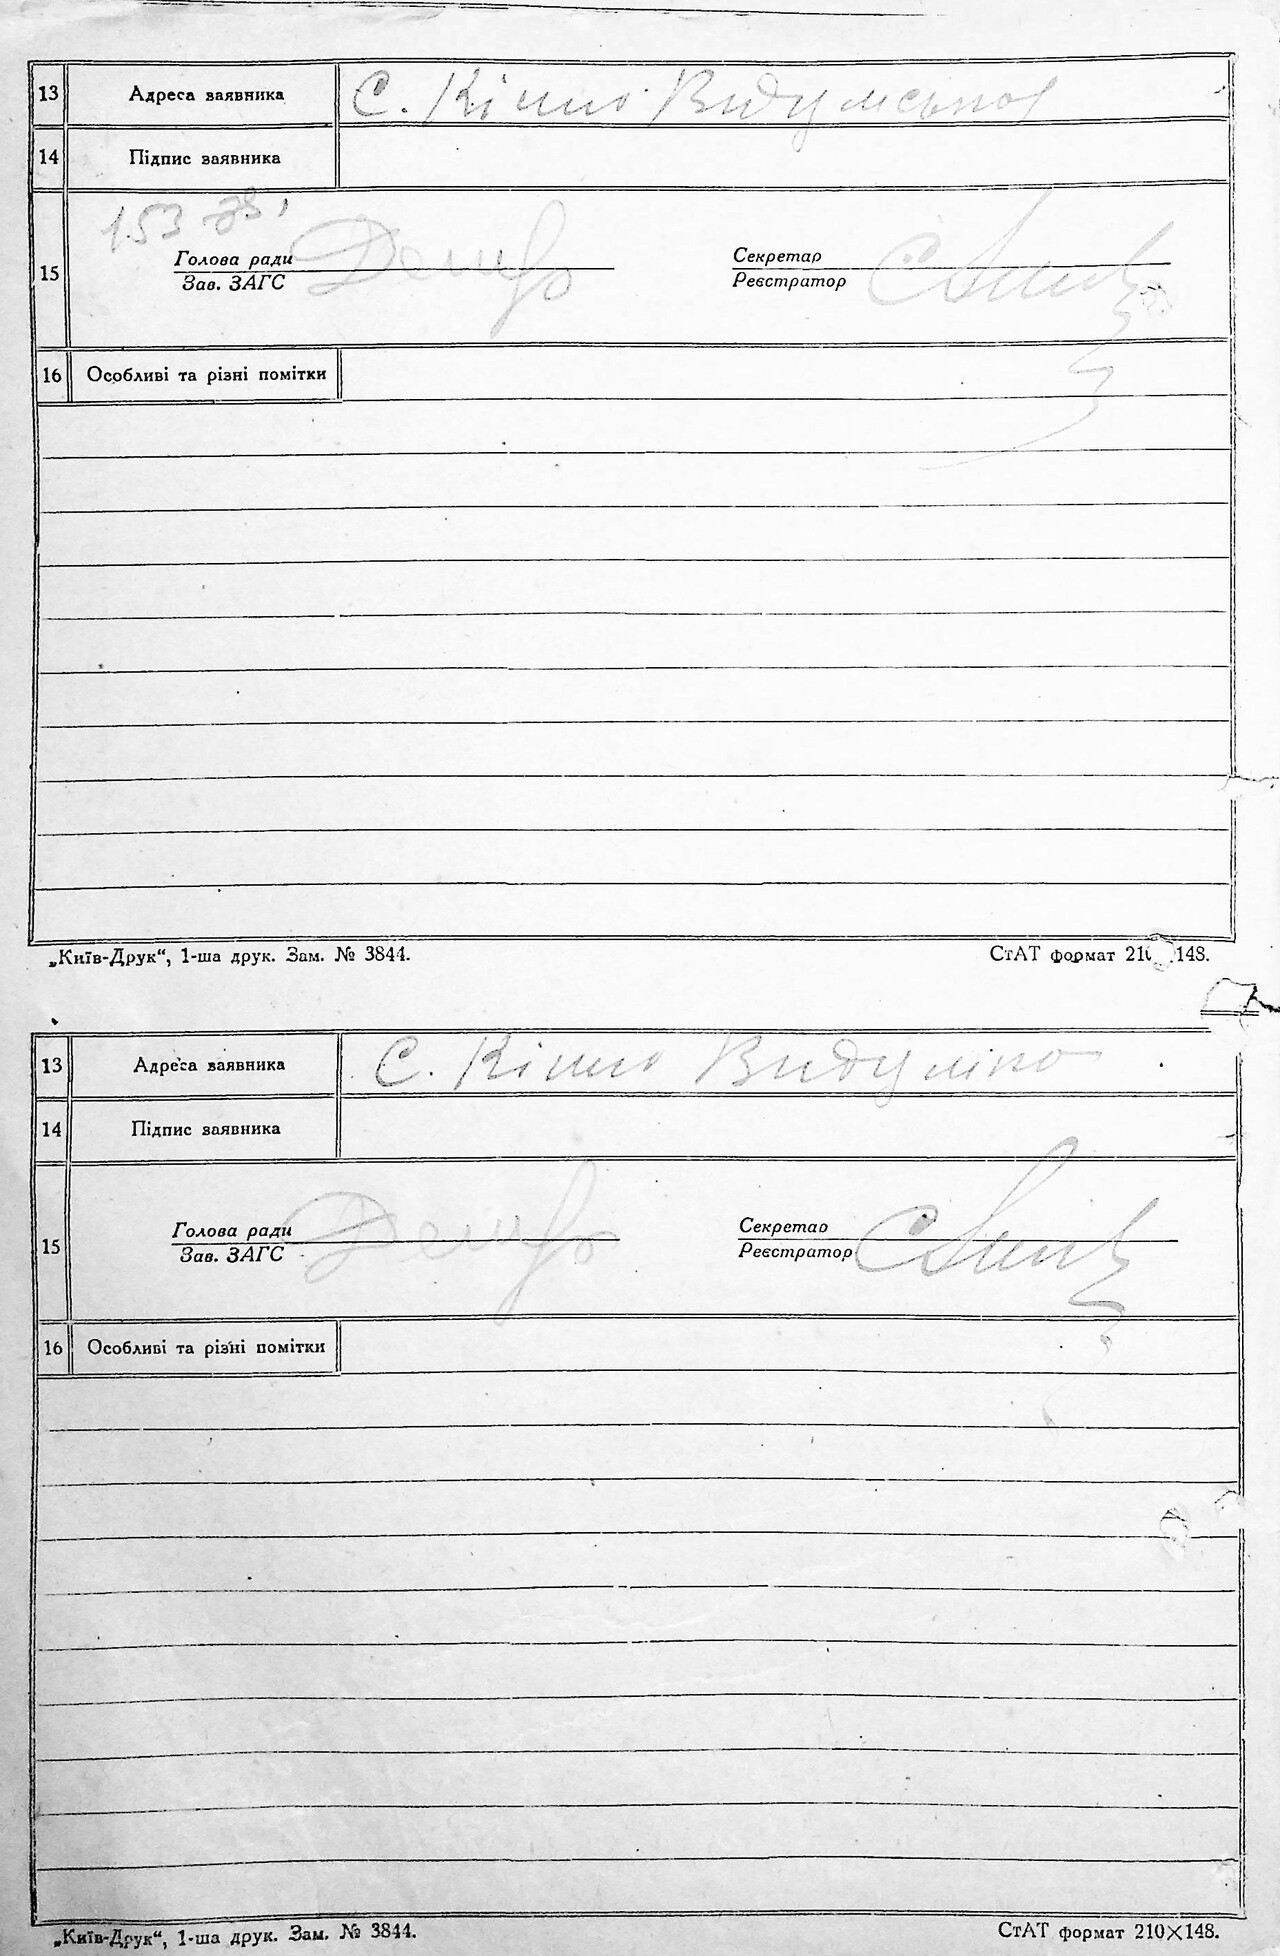 13 Адреса заявника С. Кішно Видумська
14 Підпис заявника
153 зв.
15 Голова ради Секретар
Зав. ЗАГС Реєстратор
16 Особливі та різні помітки
„Київ-Друк“, 1-ша друк. Зам. № 3844. СтАТ формат 210 148.
13 Адреса заявника С.
14 Підпис заявника
15 Голова ради Секретар
Зав. ЗАГС Реєстратор
16 Особливі та різні помітки
„Київ-Друк“, 1-ша друк. Зам. № 3844. СтАТ формат 210×148.